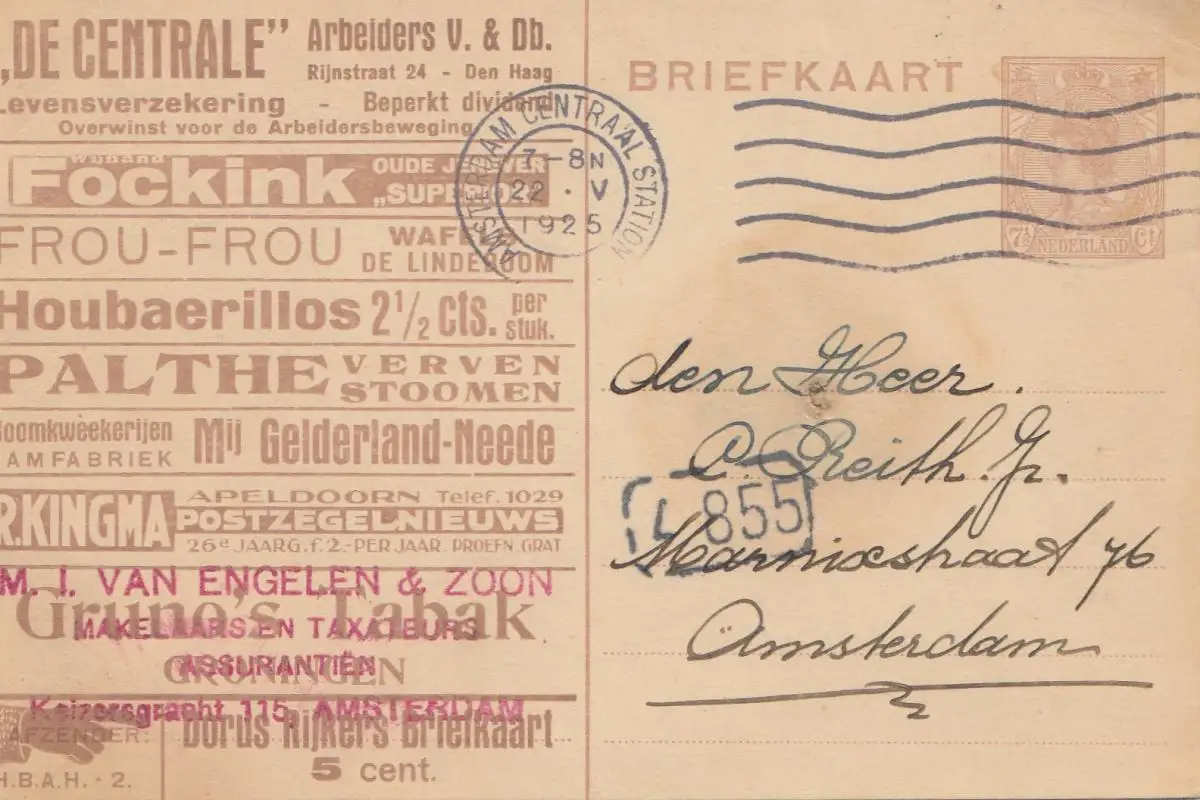 „DE CENTRALE” Arbeiders V. & Db.
Rijnstraat 24 - Den Haag
Levensverzekering - Beperkt dividend
Overwinst voor de Arbeidersbeweging
Wijnand
Fockink OUDE JENEVER
„SUPERIOR”
FROU-FROU WAFEL
DE LINDEBOOM
Houbaerillos 2½ cts. per
stuk.
PALTHE VERVEN
STOOMEN
Boomkweekerijen
JAMFABRIEK Mij Gelderland-Neede
R.KINGMA APELDOORN Telef. 1029
POSTZEGELNIEUWS
26e JAARG. f. 2.- PER JAAR. PROEFN. GRAT
M. I. VAN ENGELEN & ZOON
Gruno's Tabak
MAKELAARS EN TAXATEURS
ASSURANTIËN
GRONINGEN
Keizersgracht 115, AMSTERDAM
AFZENDER:
Dorus Rijkers Briefkaart
5 cent.
H.B.A.H. - 2.
BRIEFKAART
AMSTERDAM CENTRAAL STATION
7-8N
22 · V
1925
7½ NEDERLAND Ct
den Heer.
C. Reith. Jr.
L 855
Marnixstraat 76
Amsterdam